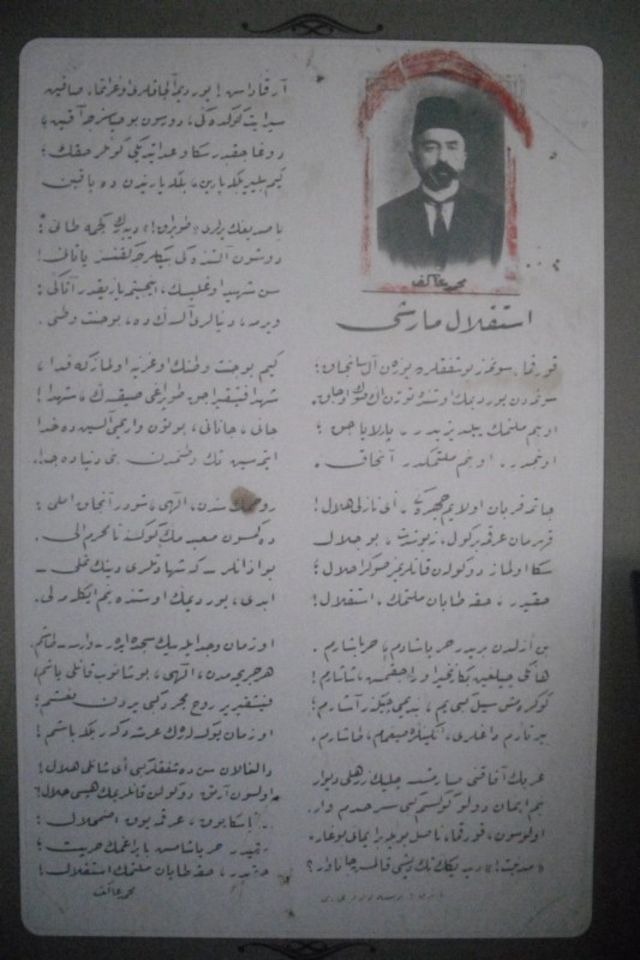 محمد عاكف
استقلال مارشى
قورقما، سونمز بو شفقلرده يوزن آل سانجاق؛
سونمه‌دن يورديمك اوستنده توتن اك صوك اوجاق.
او بنم ملتمك ييلديزيدر، پارلاياجق؛
او بنمدر، او بنم ملتمكدر آنجاق.
چاتمه قربان اولايم چهره‌كى، اى نازلى هلال!
قهرمان عرقمه بر كول.. نه بو شدت، بو جلال
سكا اولماز دوكولن قانلريمز صوكرا حلال؛
حقيدر، حقه طاپان ملتمك، استقلال!
بن ازلدن بريدر حر ياشادم، حر ياشارم.
هانكى چيلغين بكا زنجير اوراجقمش، شاشارم!
كوكره‌مش سيل كبى يم، بنديمى چيكنر، آشارم؛
ييرتارم داغلرى، انكينلره صيغمام، طاشارم.
غربك آفاقنى صارمشسه چليك زرهلى ديوار
بنم ايمان دولو كوكسم كبى سرحدم وار.
اولوسون، قورقما، ناصل بويله بر ايمانى بوغار،
«مدنيت!» ديديكك تك ديشى قالمش جاناوار؟
آرقاداش! يورديمه آلچاقلرى اوغراتمه صاقين
سپر ايت كوكده‌كى، دورسون بو حياسزجه آقين؛
دوغاجقدر سكا وعد ايتديكى كونلر حقك؛
كيم بيلير، بلكه يارين، بلكه ياريندن ده ياقين
باصديغك يرلرى «طوپراق!» دييه‌رك كچمه، طانى؛
دوشون آلتنده‌كى بيكلرجه كفنسز ياتانى!
سن شهيد اوغليسك، اينجيتمه، يازيقدر، آتاكى؛
ويرمه، دنيالرى آلسه‌ك ده، بو جنت وطنى.
كيم بو جنت وطنك اوغرينه اولماز كه فدا،
شهدا فيشقيراجق طوپراغى صيقسه‌ك، شهدا!
جانى، جانانى، بوتون واريمى آلسين ده خدا
ايتمه‌سين تك وطنمدن بنى دنياده جدا.
روحمك سندن، الهى، شودر آنجاق املى؛
دكمسون معبدمك كوكسنه نامحرم الى.
بو اذانلر ـ كه شهادتلرى دينك تملى ـ
ابدى، يورديمك اوستنده بنم ايكله‌ملى.
او زمان وجد ايله بيك سجده ايدر ـ وارسه ـ طاشم
هر جريحه‌مدن، الهى، بوشانوب قانلى ياشم،
فيشقيرير روح مجرد كبى يردن نعشم؛
او زمان يوكسله‌رك عرشه دكر بلكه باشم!
دالغالان سن ده شفقلر كبى اى شانلى هلال!
اولسون آرتق دوكولن قانلريمك هپسى حلال!
ابديا سكا يوق، عرقمه يوق اضمحلال؛
حقيدر، حر ياشامش بايراغمك حريت؛
حقيدر، حقه طاپان ملتمك استقلال!
محمد عاكف